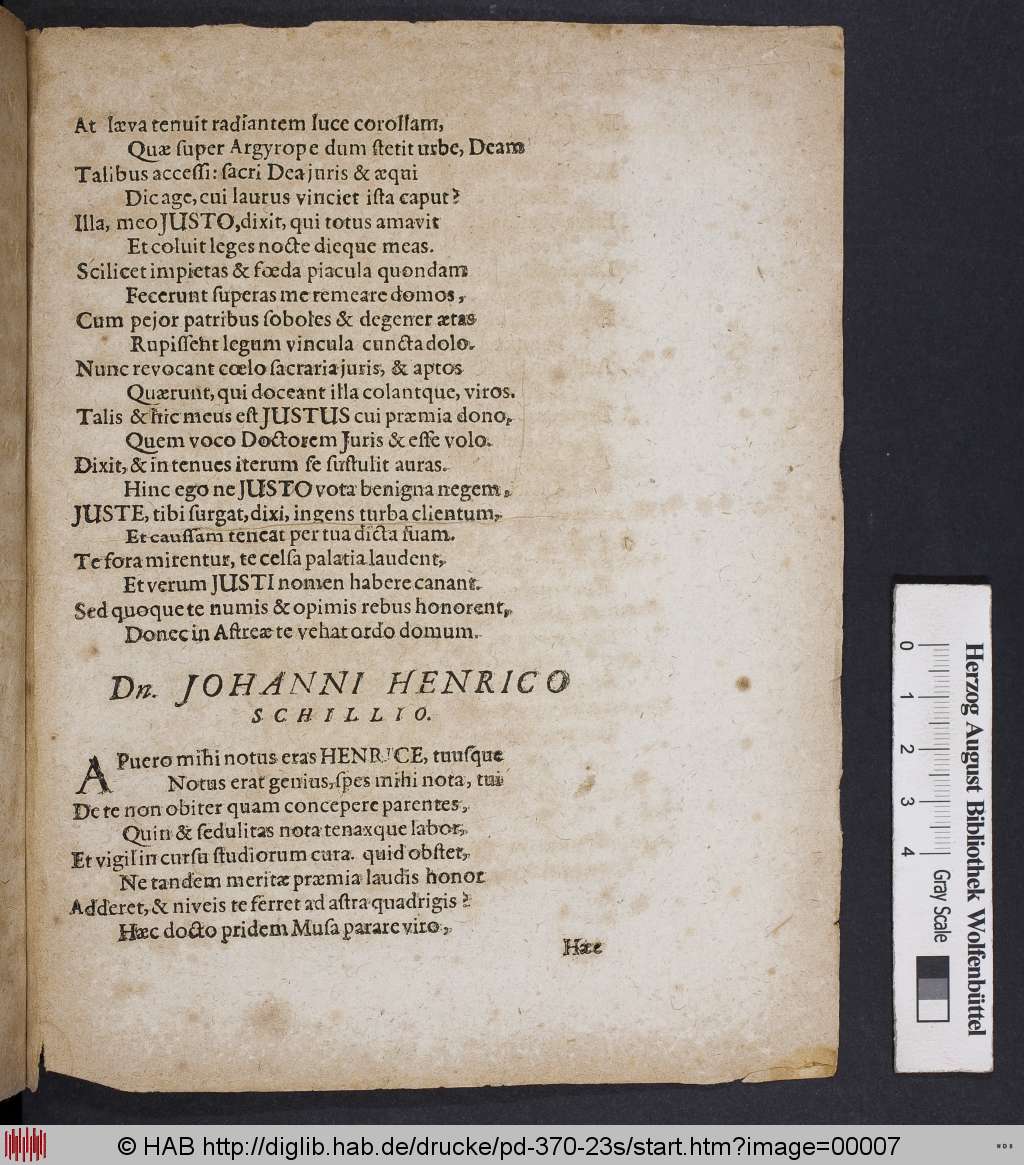 At læva tenuit radiantem luce corollam,
Quæ ſuper Argyrope dum ſtetit urbe, Deam
Talibus acceſſi: ſacri Dea juris & æqui
Dic age, cui laurus vinciet iſta caput?
Illa, meo JUSTO, dixit, qui totus amavit
Et coluit leges nocte dieque meas.
Scilicet impietas & fœda piacula quondam
Fecerunt ſuperas me remeare domos,
Cum pejor patribus ſoboles & degener ætas
Rupiſſent legum vincula cuncta dolo.
Nunc revocant cœlo ſacraria juris, & aptos
Quærunt, qui doceant illa colantque, viros.
Talis & hic meus eſt JUSTUS cui præmia dono,
Quem voco Doctorem Juris & eſſe volo.
Dixit, & in tenues iterum ſe ſuſtulit auras.
Hinc ego ne JUSTO vota benigna negem,
JUSTE, tibi ſurgat, dixi, ingens turba clientum,
Et cauſſam teneat per tua dicta ſuam.
Te fora mirentur, te celſa palatia laudent,
Et verum JUSTI nomen habere canant.
Sed quoque te numis & opimis rebus honorent,
Donec in Aſtreæ te vehat ordo domum.
Dn. JOHANNI HENRICO
SCHILLIO.
A Puero mihi notus eras HENRICE, tuusque
Notus erat genius, ſpes mihi nota, tui
De te non obiter quam concepere parentes,
Quin & ſedulitas nota tenaxque labor,
Et vigil in curſu ſtudiorum cura. quid obſtet,
Ne tandem meritæ præmia laudis honor
Adderet, & niveis te ferret ad aſtra quadrigis?
Hæc docto pridem Muſa parare viro,
Hæc
0
1
2
3
4
Gray Scale
Herzog August Bibliothek Wolfenbüttel
© HAB http://diglib.hab.de/drucke/pd-370-23s/start.htm?image=00007